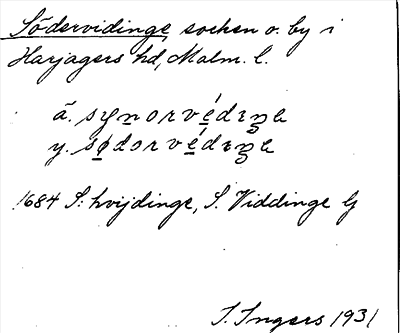 Södervidinge, socken o. by i
Harjagers hd, Malm. l.
ä. synorvédıŋe
y. sødorvédıŋe
1684 S: hvijdinge, S. Viddinge Ij
I. Ingers 1931